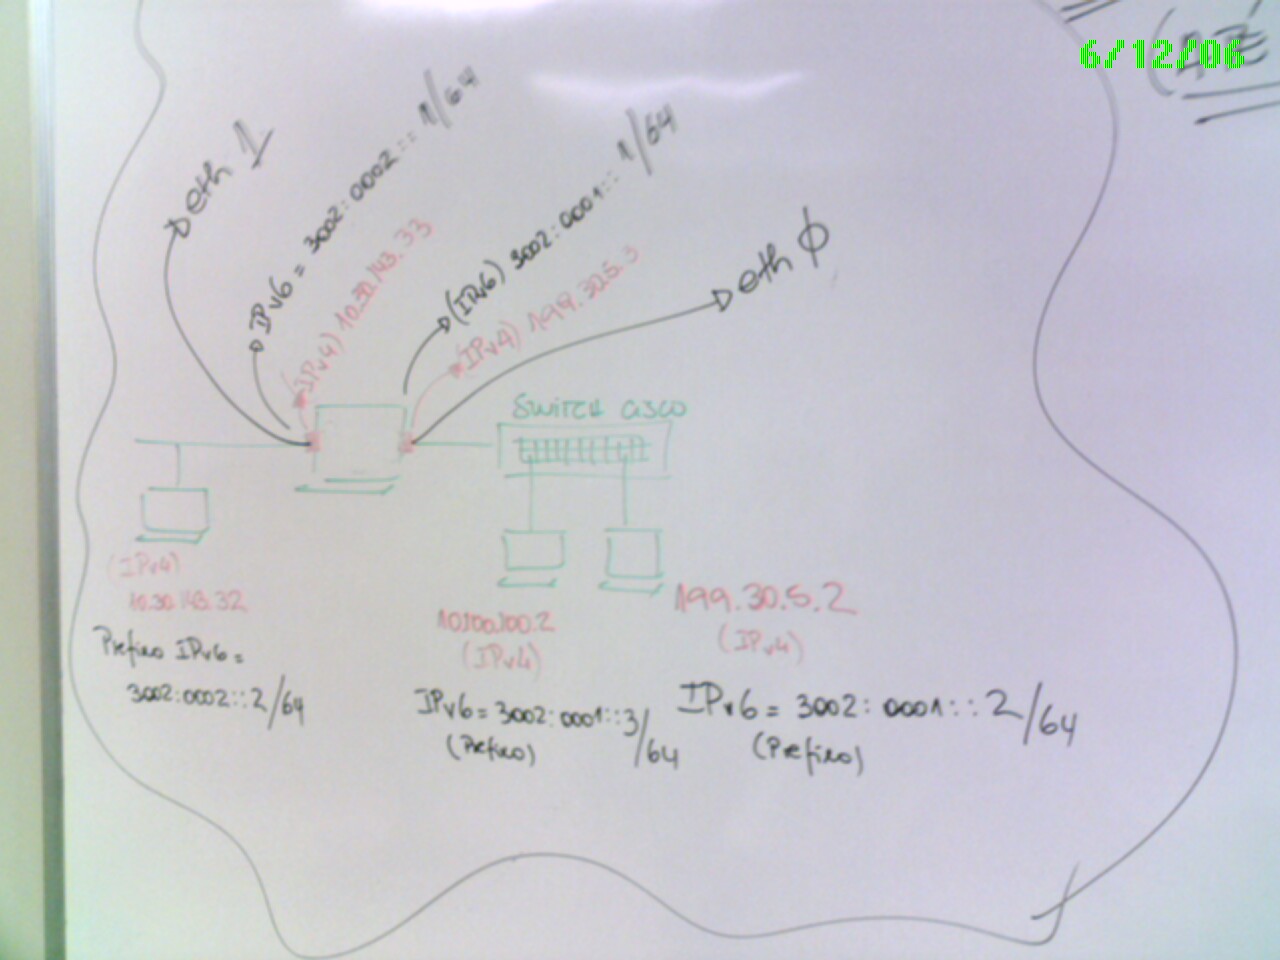 6/12/06
eth 1
IPv6 = 3002:0002::1/64
(IPv4) 10.30.143.33
(IPv6) 3002:0001::1/64
(IPv4) 199.30.5.3
eth 0
SWITCH CISCO
(IPv4)
10.30.143.32
Prefixo IPv6=
3002:0002::2/64
10.100.100.2
(IPv4)
IPv6 = 3002:0001::3/64
(Prefixo)
199.30.5.2
(IPv4)
IPv6 = 3002:0001::2/64
(Prefixo)